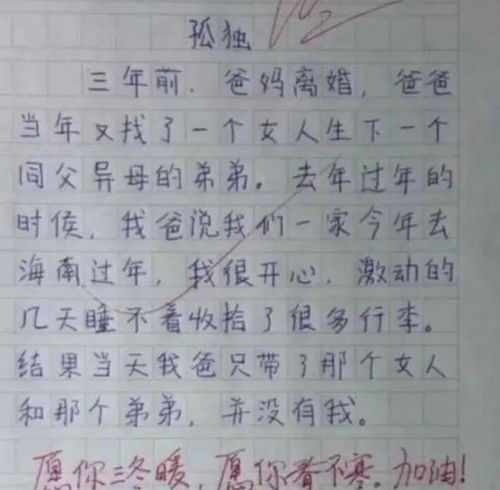 孤独
三年前.爸妈离婚,爸爸
当年又找了一个女人生下一个
同父异母的弟弟。去年过年的
时侯,我爸说我们一家今年去
海南过年,我很开心,激动的
几天睡不着收拾了很多行李。
结果当天我爸只带了那个女人
和那个弟弟,并没有我。
愿你三冬暖,愿你春不寒.加油!